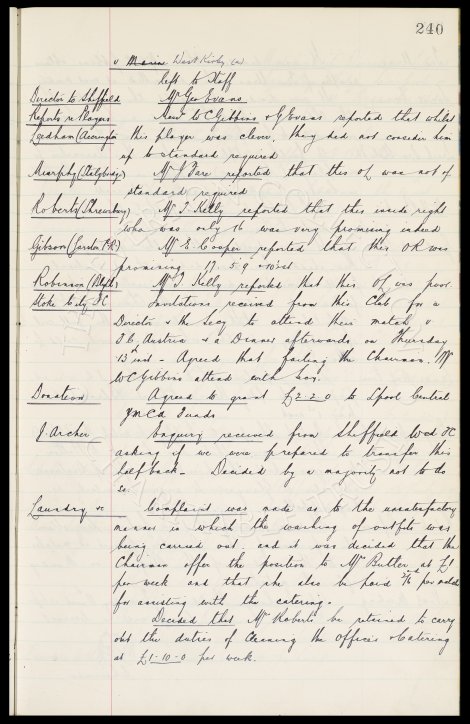 240
v Marine West Kirby (a)
Left to Staff
Director to Sheffield Mr Geo Evans
Reports re Players Messrs W C Gibbins & G Evans reported that whilst
Leedham (Accrington) this player was clever, they did not consider him
up to standard required
Murphy (Stalybridge) Mr J Fare reported that this OL was not of
standard required
Roberts (Shrewsbury) Mr T Kelly reported that this inside right
who was only 16 was very promising indeed
Gibson Mr E Cooper reported that this OR was
promising. 19. 5'9" 10st
Robinson (Blyth) Mr T Kelly reported that this OL was poor.
Stoke City FC Invitations received from this Club for a
Director & the Secy to attend their match v
F C Austria & a Dinner afterwards on Thursday
13th inst - Agreed that failing the Chairman, Mr
W C Gibbins attend with Secy.
Donation Agreed to grant £2-2-0 to Lpool Central
YMCA Funds
J. Archer Enquiry received from Sheffield Wed FC
asking if we were prepared to transfer this
half back - Decided by a majority not to do
so.
Laundry &c Complaint was made as to the unsatisfactory
manner in which the washing of outfits was
being carried out, and it was decided that the
Chairman offer the position to Mrs Butler at £1
per week and that she also be paid 2/6 per
for assisting with the catering.
Decided that Mrs Roberts be retained to carry
out the duties of Cleaning the Offices & Catering
at £1-10-0 per week.